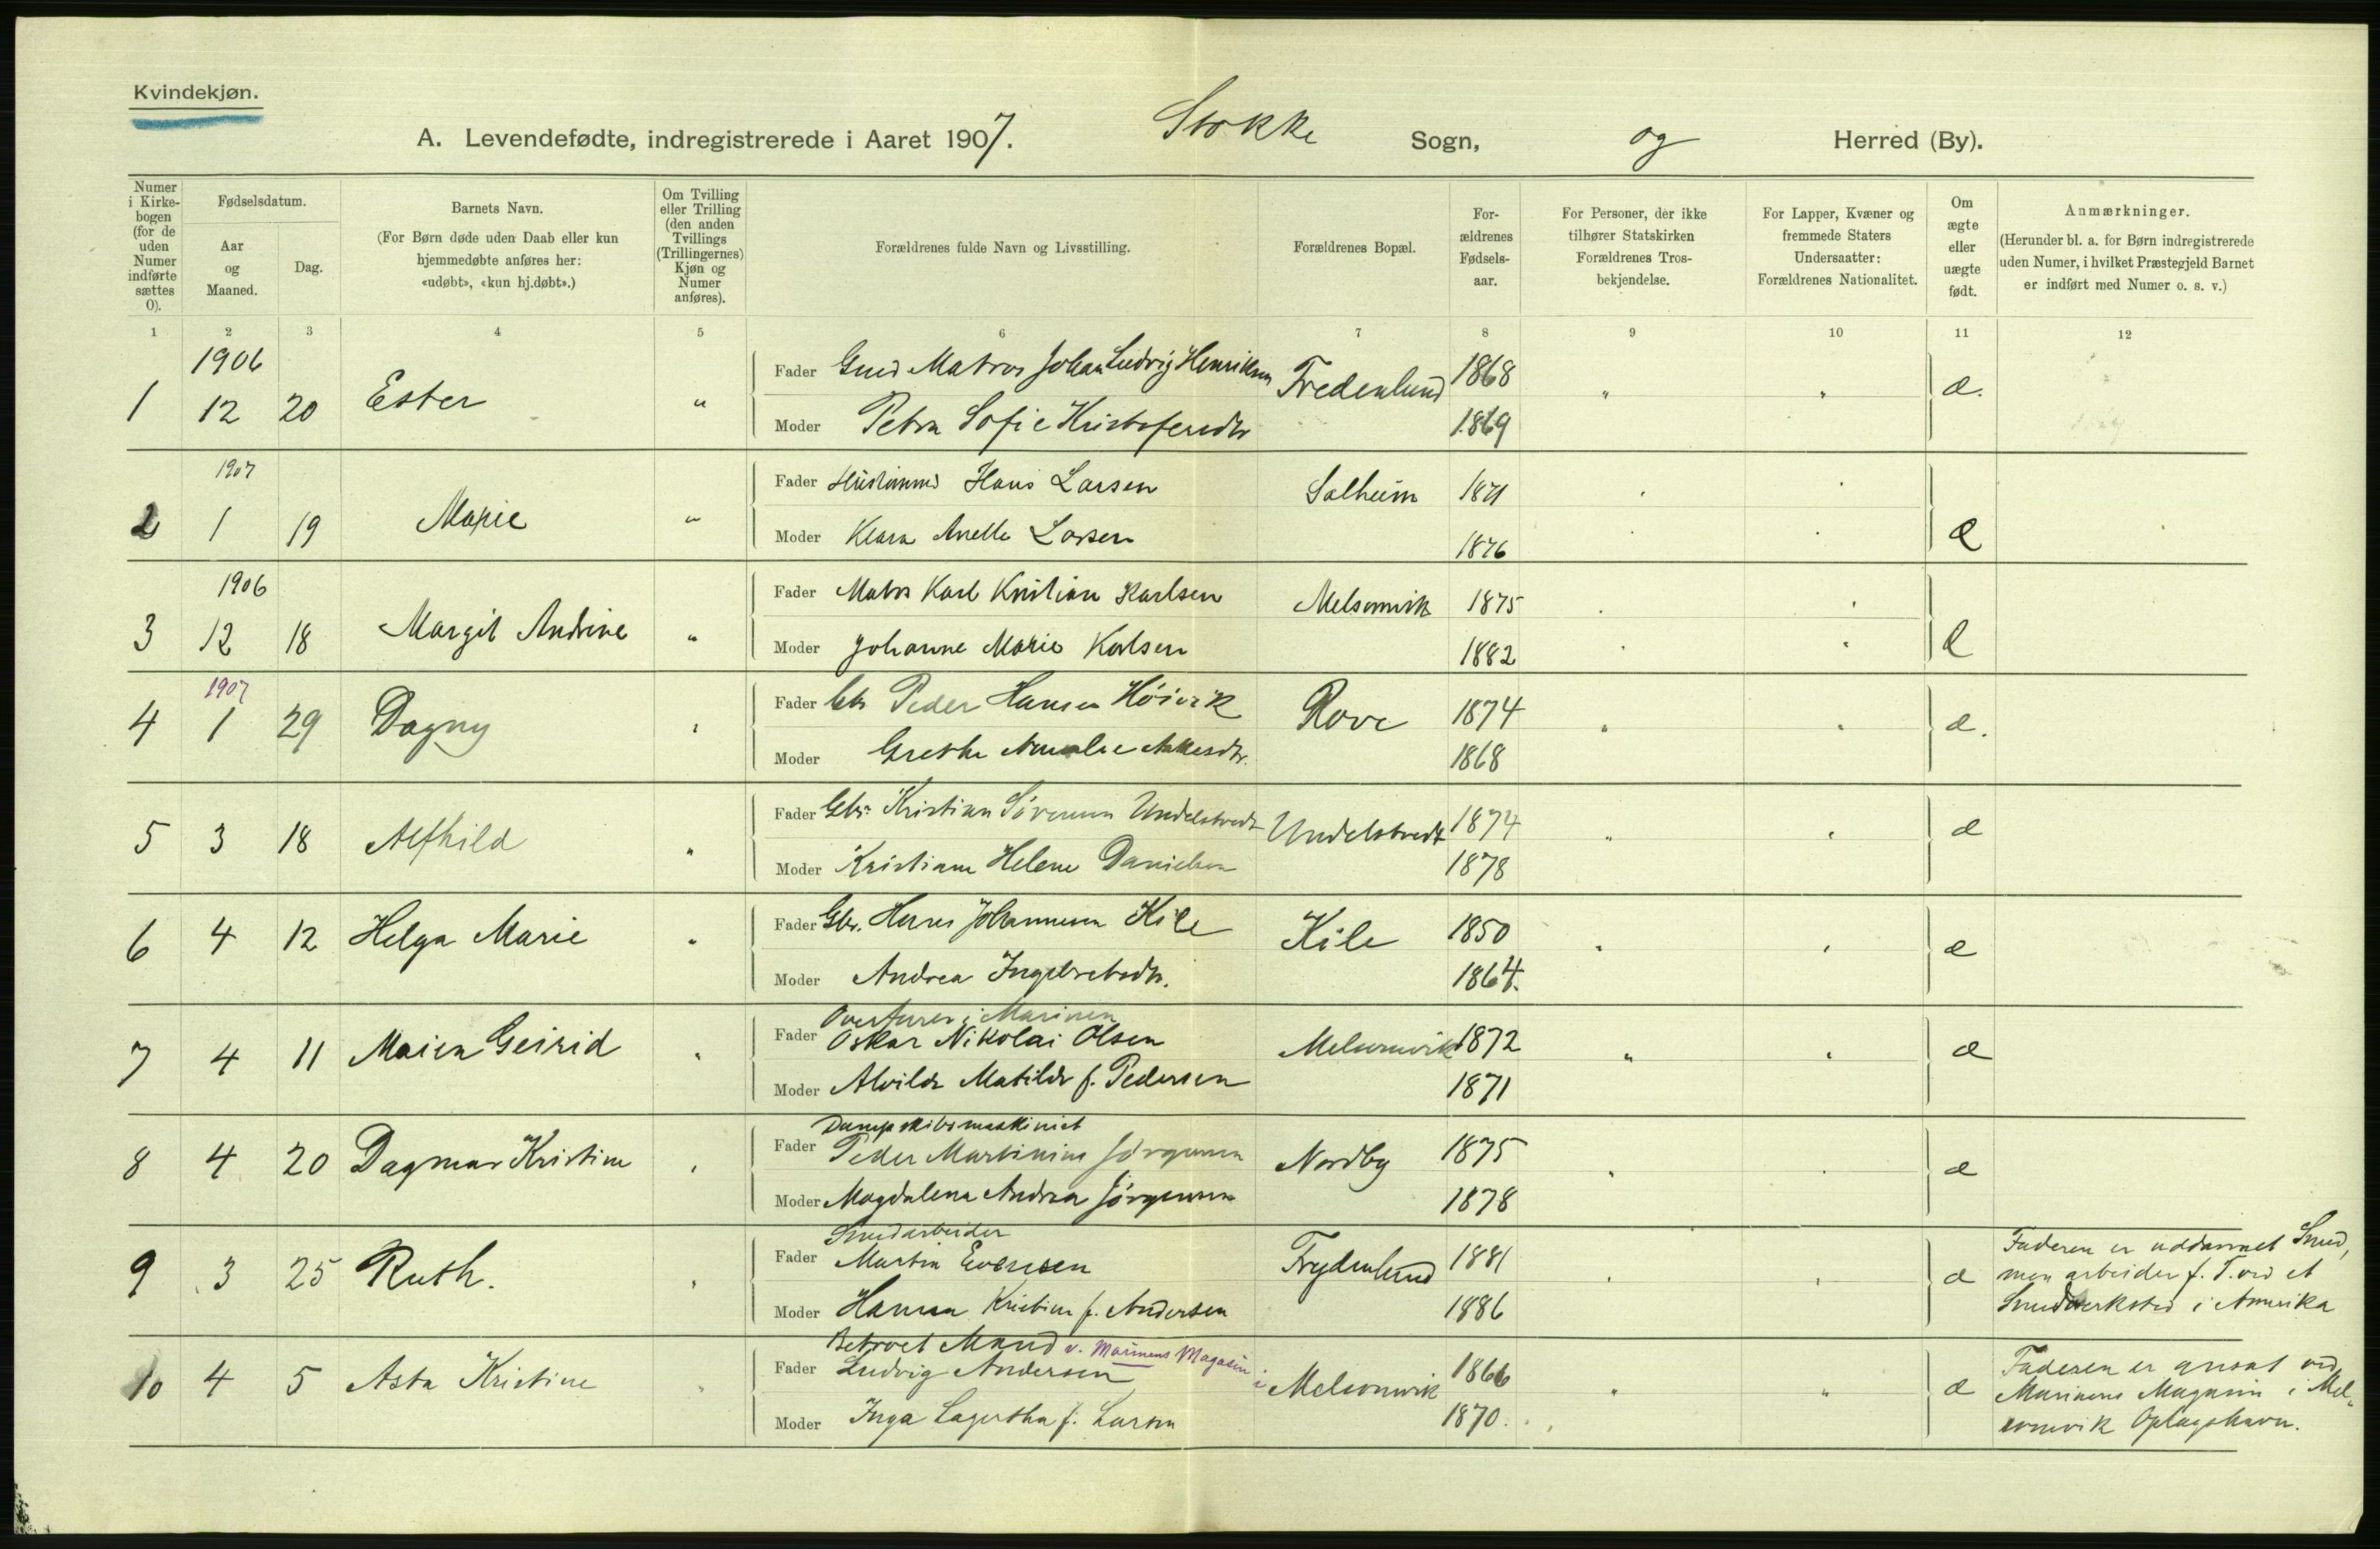 Kvindekjøn.
A. Levendefødte, indregistrerede i Aaret 1907. Stokke Sogn, og Herred (By).
Numer i Kirke-bogen (for de uden Numer indførte sættes 0).
Fødselsdatum.
Aar og Maaned.
Dag.
Barnets Navn.
(For Børn døde uden Daab eller kun
hjemmedøbte anføres her:
«udøbt», «kun hj.døbt».)
Om Tvilling
eller Trilling
(den anden
Tvillings
(Trillingernes)
Kjøn og
Numer
anføres).
Forældrenes fulde Navn og Livsstilling.
Forældrenes Bopæl.
For-
ældrenes
Fødsels-
aar.
For Personer, der ikke
tilhører Statskirken
Forældrenes Tros-
bekjendelse.
For Lapper, Kvæner og
fremmede Staters
Undersaatter:
Forældrenes Nationalitet.
Om
ægte
eller
uægte
født.
Anmærkninger.
(Herunder bl. a. for Børn indregistrerede
uden Numer, i hvilket Præstegjeld Barnet
er indført med Numer o. s. v.)
1 2 3 4 5 6 7 8 9 10 11 12
1906
1 12 20 Ester " Fader Matros Johan Ludvig Henriksen Fredenlund 1868 " " æ.
Moder Petra Sofie Kristofersdtr 1869
1907
2 1 19 Marie " Fader Hans Larsen Solheim 1871
Moder Klara Larsen 1876 æ
1906
3 12 18 Margit Andrine " Fader Matros Karl Kristian Karlsen Melsomvik 1875
Moder Johanne Marie Karlsen 1882 æ
1907
4 1 29 Dagny " Fader Gbr Peder Hansen Høivik Rove 1874 " " æ.
Moder Grethe 1868
5 3 18 Alfhild " Fader Gbr. Kristian Sørensen Undelstvedt Undelstvedt 1874 " " æ
Moder Kristiane Helene Danielsen 1878
6 4 12 Helga Marie " Fader Gbr. Hans Johannesen Kile Kile 1850 " " æ
Moder Andrea Ingebretsdtr. 1864.
i Marinen
7 4 11 Maien Geirid " Fader Oskar Nikolai Olsen Melsomvik 1872 " " æ
Moder Alvilde Matilde f. Pedersen 1871
Dampskibsmaskinist
8 4 20 Dagmar Kristine " Fader Peder Martinius Jørgensen Nordby 1875 " " æ
Moder Magdalena Andrea Jørgensen 1878
Smedarbeider
9 3 25 Ruth. " Fader Martin Evensen Frydenlund 1881 " " æ
Moder Hanna Kristine f. Andersen 1886
Faderen er uddannet Smed,
men arbeider f. T. ved et
Smedverksted i Amerika
Betroet Mand v. Marinens Magasin i
10 4 5 Asta Kristine " Fader Ludvig Andersen Melsomvik 1866 " " æ
Moder Inga Lagertha f. Larsen 1870.
Faderen er ansat ved
Marinens Magasin i Mel-
somvik Oplagshavn.